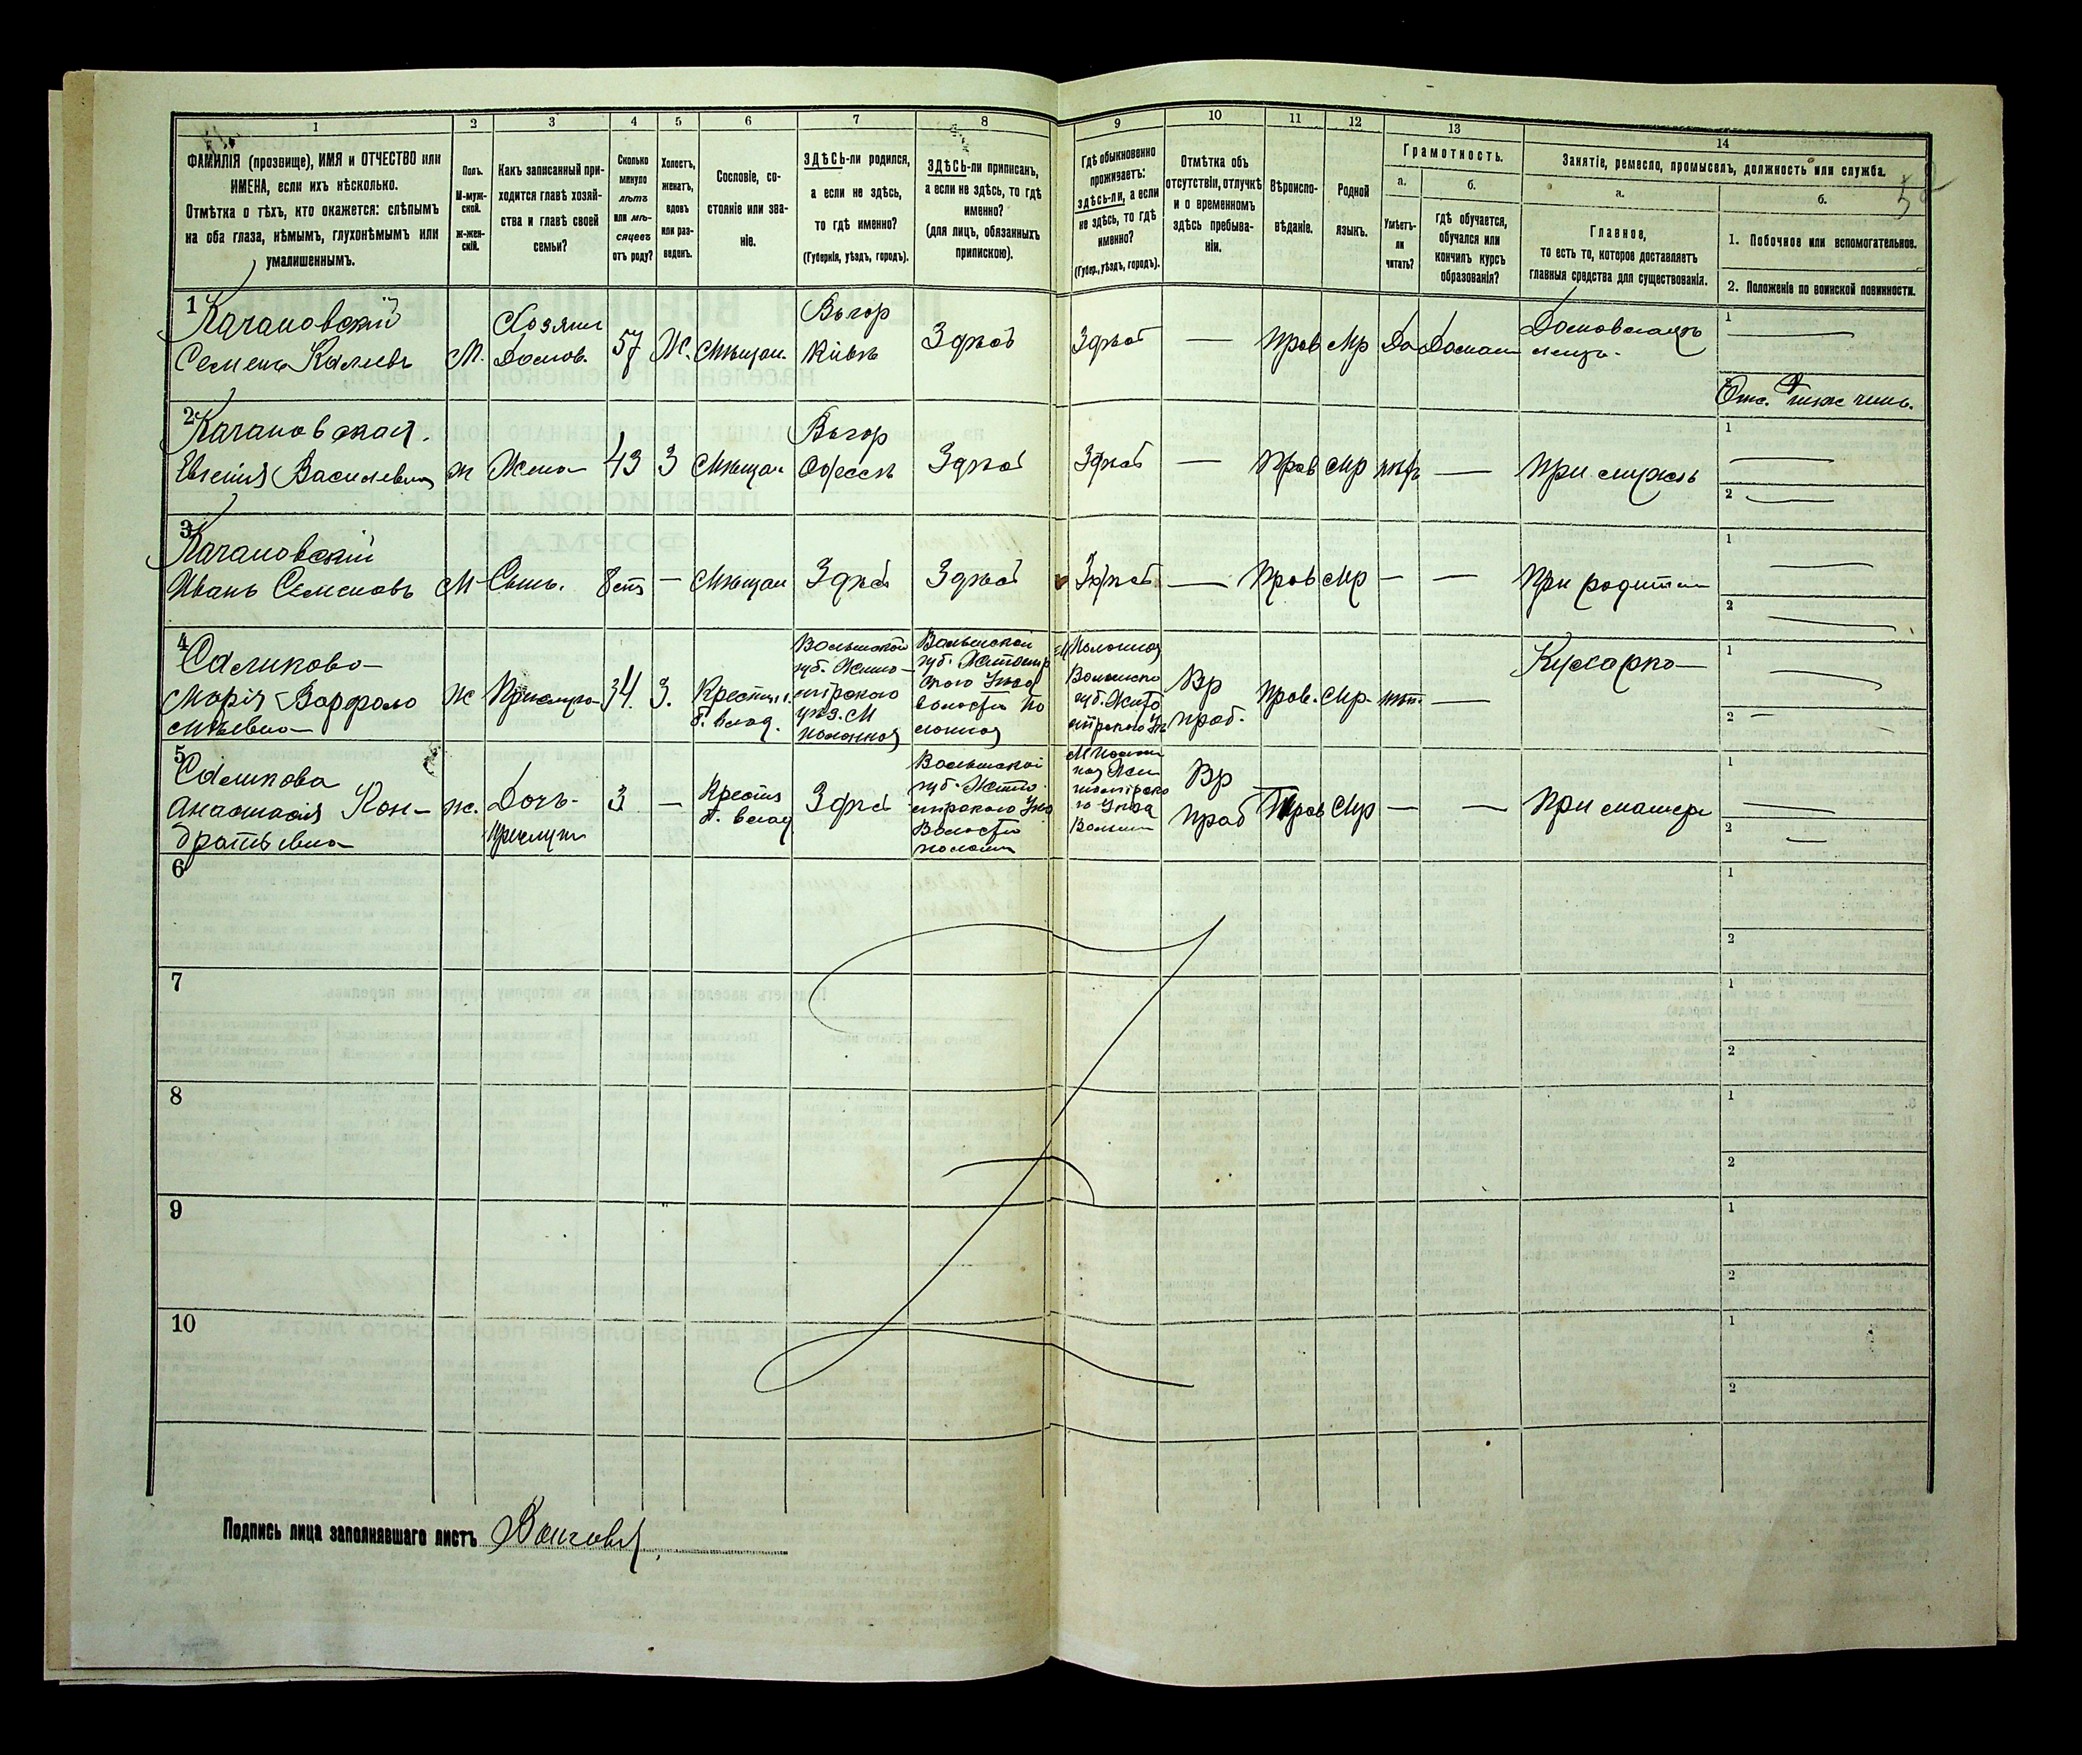 1
2
3
4
5
6
7
8
9
10
11
12
13
14
ФАМИЛІЯ (прозвище), ИМЯ и ОТЧЕСТВО или
ИМЕНА, если ихъ нѣсколько.
Отмѣтка о тѣхъ, кто окажется: слѣпымъ
на оба глаза, нѣмымъ, глухонѣмымъ или
умалишеннымъ.
Полъ.
М-муж-
ской.
Ж-жен-
скій.
Какъ записанный при-
ходится главѣ хозяй-
ства и главѣ своей
семьи?
Сколько
минуло
лѣтъ
или мѣ-
сяцевъ
отъ роду?
Холостъ,
женатъ,
вдовъ
или раз-
веденъ.
Сословіе, со-
стояніе или зва-
ніе.
ЗДѢСЬ-ли родился,
а если не здѣсь,
то гдѣ именно?
(Губернія, уѣздъ, городъ).
ЗДѢСЬ-ли приписанъ,
а если не здѣсь, то гдѣ
именно?
(для лицъ, обязанныхъ
припискою).
Гдѣ обыкновенно
проживаетъ:
здѣсь-ли, а если
не здѣсь, то гдѣ
именно?
(Губер., уѣздъ, городъ).
Отмѣтка объ
отсутствіи, отлучкѣ
и о временномъ
здѣсь пребыва-
ніи.
Вѣроиспо-
вѣданіе.
Родной
языкъ.
Грамотность.
а.
Умѣетъ-
ли
читать?
б.
гдѣ обучается,
обучался или
кончилъ курсъ
образованія?
Занятіе, ремесло, промыселъ, должность или служба.
а.
Главное,
то есть то, которое доставляетъ
главныя средства для существованія.
б.
1. Побочное или вспомогательное.
2. Положеніе по воинской повинности.
1
Качановскій
Семенъ
М.
Хозяинъ
Домов.
57
Ж.
Мѣщан.
Въ гор
Кіевѣ
Здѣсь
Здѣсь
—
Прав
Мр
Да
Домаш
1
2
Качановская.
Евгенія Васильевна
Ж
Жена
43
З
Мѣщан
Въ гор
Одессѣ
Здѣсь
Здѣсь
—
Прав
Мр
нѣтъ
—
При мужѣ
1
2
3
Качановскій
Иванъ Семеновъ
М
Сынъ.
—
Мѣщан
Здѣсь
Здѣсь
Здѣсь
—
Прав
Мр
—
—
При родител
1
2
4
Марія Варфоло
мѣевна
Ж
Прислуга
34.
З.
Крестьян.
б. влад.
Волынской
губ. Жито-
мірскаго
уѣз. М
Полонная
Волынской
губ. Житомір
скаго Уѣзд
волости По
лонная
Полонная
Волынско
губ. Жито
мірскаго Уѣ
Вр
преб.
Прав.
Мр.
нѣт.
—
Кухарка
1
2
5
Анастасія Кон-
дратьевна
Ж.
Дочь
прислуги
3
—
Крестья
б. влад
Здѣсь
Волынской
губ. Жито
мірскаго Уѣз
Волости
Полонн
Вр
преб
Прав
Мр
—
—
При матери
1
2
6
1
2
7
1
2
8
1
2
9
1
2
10
1
2
Подпись лица заполнявшаго листъ